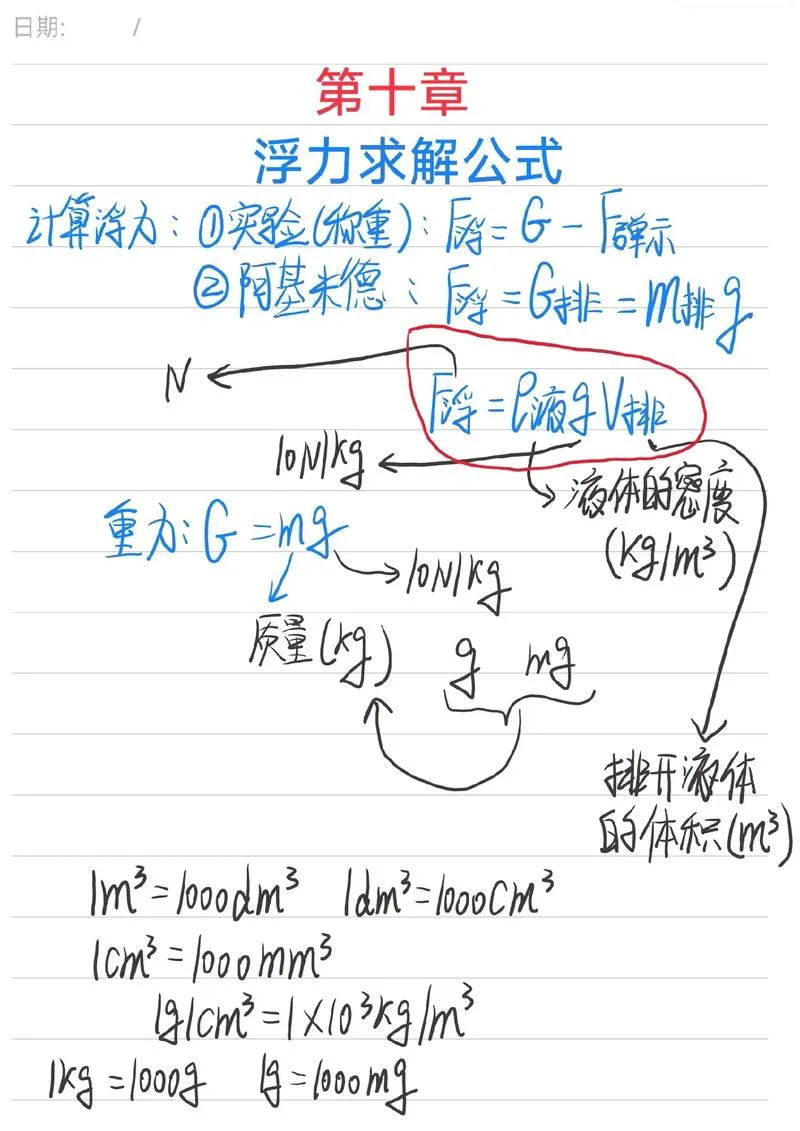 日期: /
第十章
浮力求解公式
计算浮力：①实验(称重)：F浮=G-F弹示
②阿基米德：F浮=G排=m排g
N
F浮=ρ液gV排
10N/kg
液体的密度
(kg/m³)
重力:G=mg
10N/kg
质量(kg)
g mg
排开液体
的体积(m³)
1m³=1000dm³ 1dm³=1000cm³
1cm³=1000mm³
1g/cm³=1×10³kg/m³
1kg=1000g 1g=1000mg